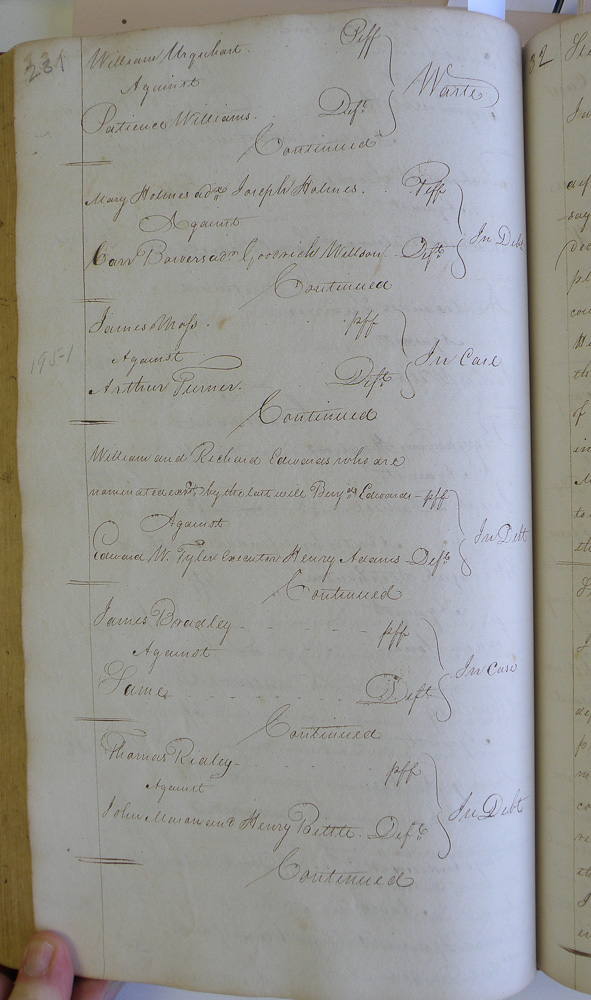 231
William Urquhart. Plff
Against
Waste
Patience Williams. Deft
Continued
Mary Holmes adx Joseph Holmes. Plff
Against
In Debt
Carr Bowers adr Goodrich Willson Deft
Continued
James Moss. plff
1951
Against
In Case
Arthur Turner. Deft
Continued
William and Richard Edwards who are
nominated exors by the last will Benj Edwards - plff
Against
In Debt
Edward W. Tyler Executor Henry Adams Defts
Continued
James Bradley plff
Against
In Case
Same Deft
Continued
Thomas Ridley plff
Against
In Debt
John Mason and Henry Brittle. Defts
Continued